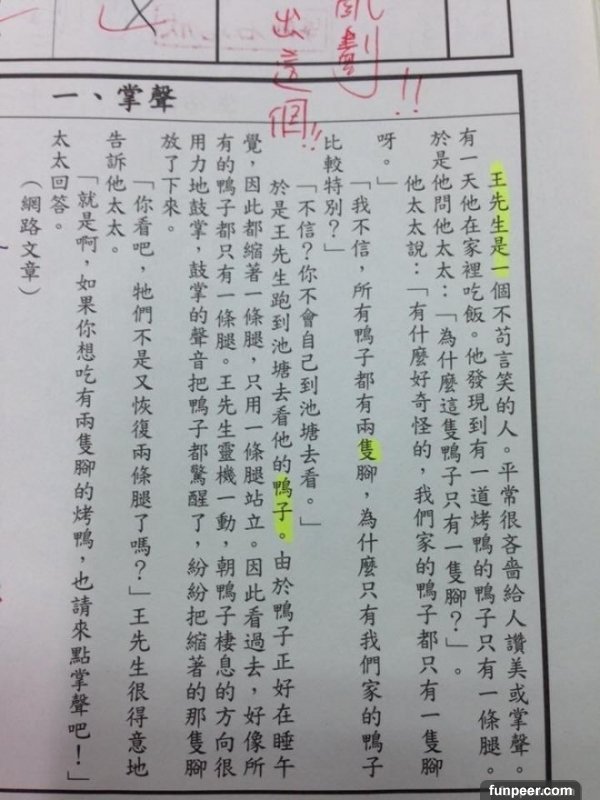 亂劃!!
出這個!!
一、掌聲
王先生是一個不苟言笑的人。平常很吝嗇給人讚美或掌聲。
有一天他在家裡吃飯。他發現到有一道烤鴨的鴨子只有一條腿。
於是他問他太太:「為什麼這隻鴨子只有一隻腳?」。
他太太說:「有什麼好奇怪的,我們家的鴨子都只有一隻腳
呀。」
「我不信,所有鴨子都有兩隻腳,為什麼只有我們家的鴨子
比較特別?」
「不信?你不會自己到池塘去看。」
於是王先生跑到池塘去看他的鴨子。由於鴨子正好在睡午
覺,因此都縮著一條腿,只用一條腿站立。因此看過去,好像所
有的鴨子都只有一條腿。王先生靈機一動,朝鴨子棲息的方向很
用力地鼓掌,鼓掌的聲音把鴨子都驚醒了,紛紛把縮著的那隻腳
放了下來。
「你看吧,牠們不是又恢復兩條腿了嗎?」王先生很得意地
告訴他太太。
「就是啊,如果你想吃有兩隻腳的烤鴨,也請來點掌聲吧!」
太太回答。
(網路文章)
funpeer.com